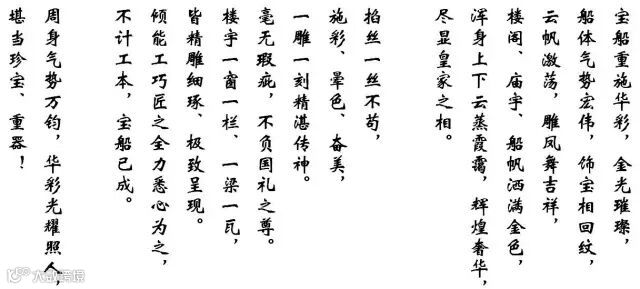 宝船重施华彩，金光璀璨，
船体气势宏伟，饰宝相回纹，
云帆激荡，雕凤舞吉祥，
楼阁、庙宇、船帆洒满金色，
浑身上下云蒸霞霭，辉煌奢华，
尽显皇家之相。
掐丝一丝不苟，
施彩、晕色、奋美，
一雕一刻精湛传神。
毫无瑕疵，不负国礼之尊。
楼宇一窗一栏、一梁一瓦，
皆精雕细琢、极致呈现。
倾能工巧匠之全力悉心为之，
不计工本，宝船已成。
周身气势万钧，华彩光耀照人，
堪当珍宝、重器！